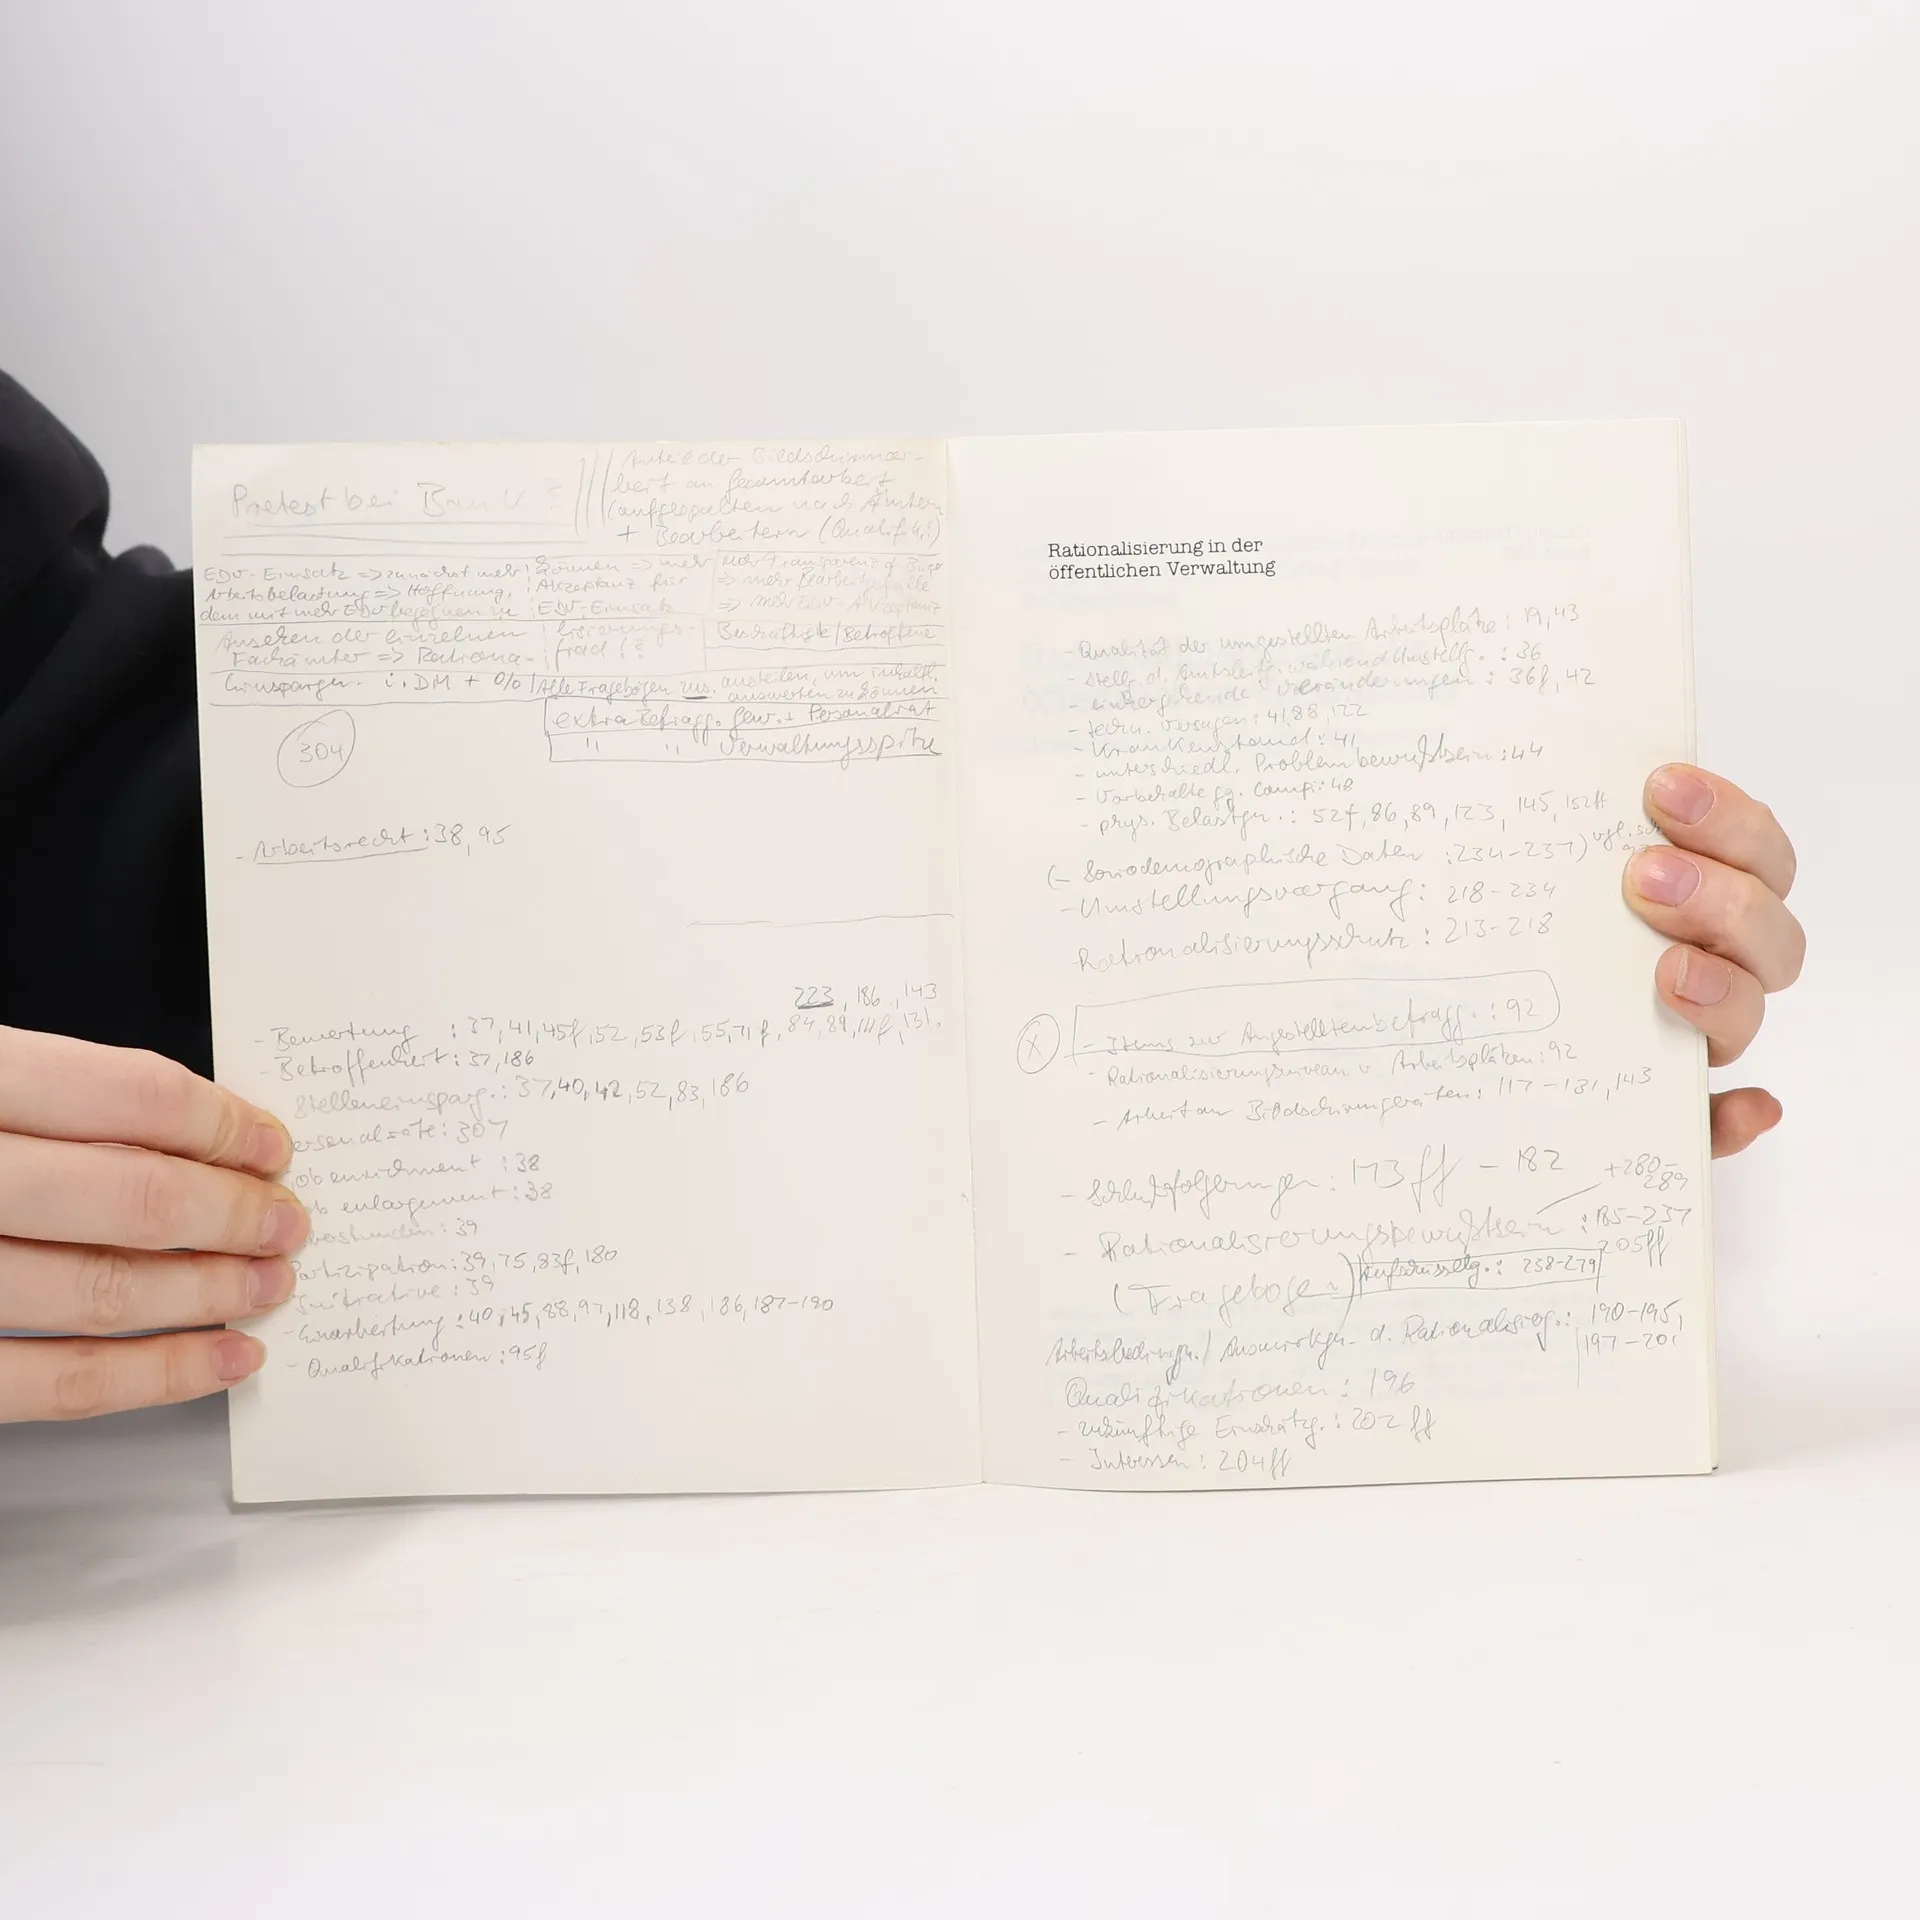 Pretest bei
Anteil der Bildschirmar-
beit an Gesamtarbeit
(aufgespalten nach Ämtern
+ Bearbeitern (Qualif.!)
EDV-Einsatz => zunächst mehr
Arbeitsbelastung => Hoffnung,
dem mit mehr EDV begegnen zu
können => mehr
Akzeptanz für
EDV-Einsatz
mehr Transparenz
=> mehr
=> mehr EDV-Akzeptanz
Ansehen der einzelnen
Fachämter => Rationa-
lisierungs-
grad!?
Beschäftigte/Betroffene
Einspargn. i. DM + %
Alle Fragebögen austeilen, um inhaltl.
auswerten zu können
extra Befragg. Gew. + Personalrat
" " Verwaltungsspitze
304
- Arbeitsrecht: 38, 95
223, 186, 143
- Bewertung : 37, 41, 45f, 52, 53f, 55, 71f, 84, 89, 111f, 131.
- Betroffenheit: 37, 186
Stelleneinsparg.: 37, 40, 42, 52, 83, 186
ersonalräte: 307
ob enrichment : 38
ob enlargement: 38
berstunden: 39
Partizipation: 39, 75, 83f, 180
Initiative: 39
- Einarbeitung: 40, 45, 88, 97, 118, 138, 186, 187-190
- Qualifikationen: 95f
Rationalisierung in der
öffentlichen Verwaltung
- Qualität der umgestellten Arbeitsplätze: 19, 43
- Stellg. d. Amtsleitg. während Umstellg.: 36
- einhergehende Veränderungen: 36f, 42
- techn. Versagen: 41, 88, 122
- Krankenstand: 41
- unterschiedl. Problembewußtsein: 44
- Vorbehalte gg. Comp.: 48
- phys. Belastgn.: 52f, 86, 89, 123, 145, 152ff
(- Soziodemographische Daten : 234-237) vgl.
- Umstellungsvorgang: 218-234
Rationalisierungsschutz: 213-218
X
- Items zur Angestelltenbefragg.: 92
- Rationalisierungsniveau v. Arbeitsplätzen: 92
- Arbeit an Bildschirmgeräten: 117-131, 143
- Schlußfolgerungen: 173ff - 182
+280-
289
- Rationalisierungsbewußtsein : 185-237
205ff
(Fragebogen) Aufschlüsslg.: 238-279
Arbeitsbedingn./Auswirkgn. d. Rationalisierg.: 190-195,
197-201
Qualifikationen: 196
- zukünftige Einschätzg.: 202ff
- Interessen: 204ff